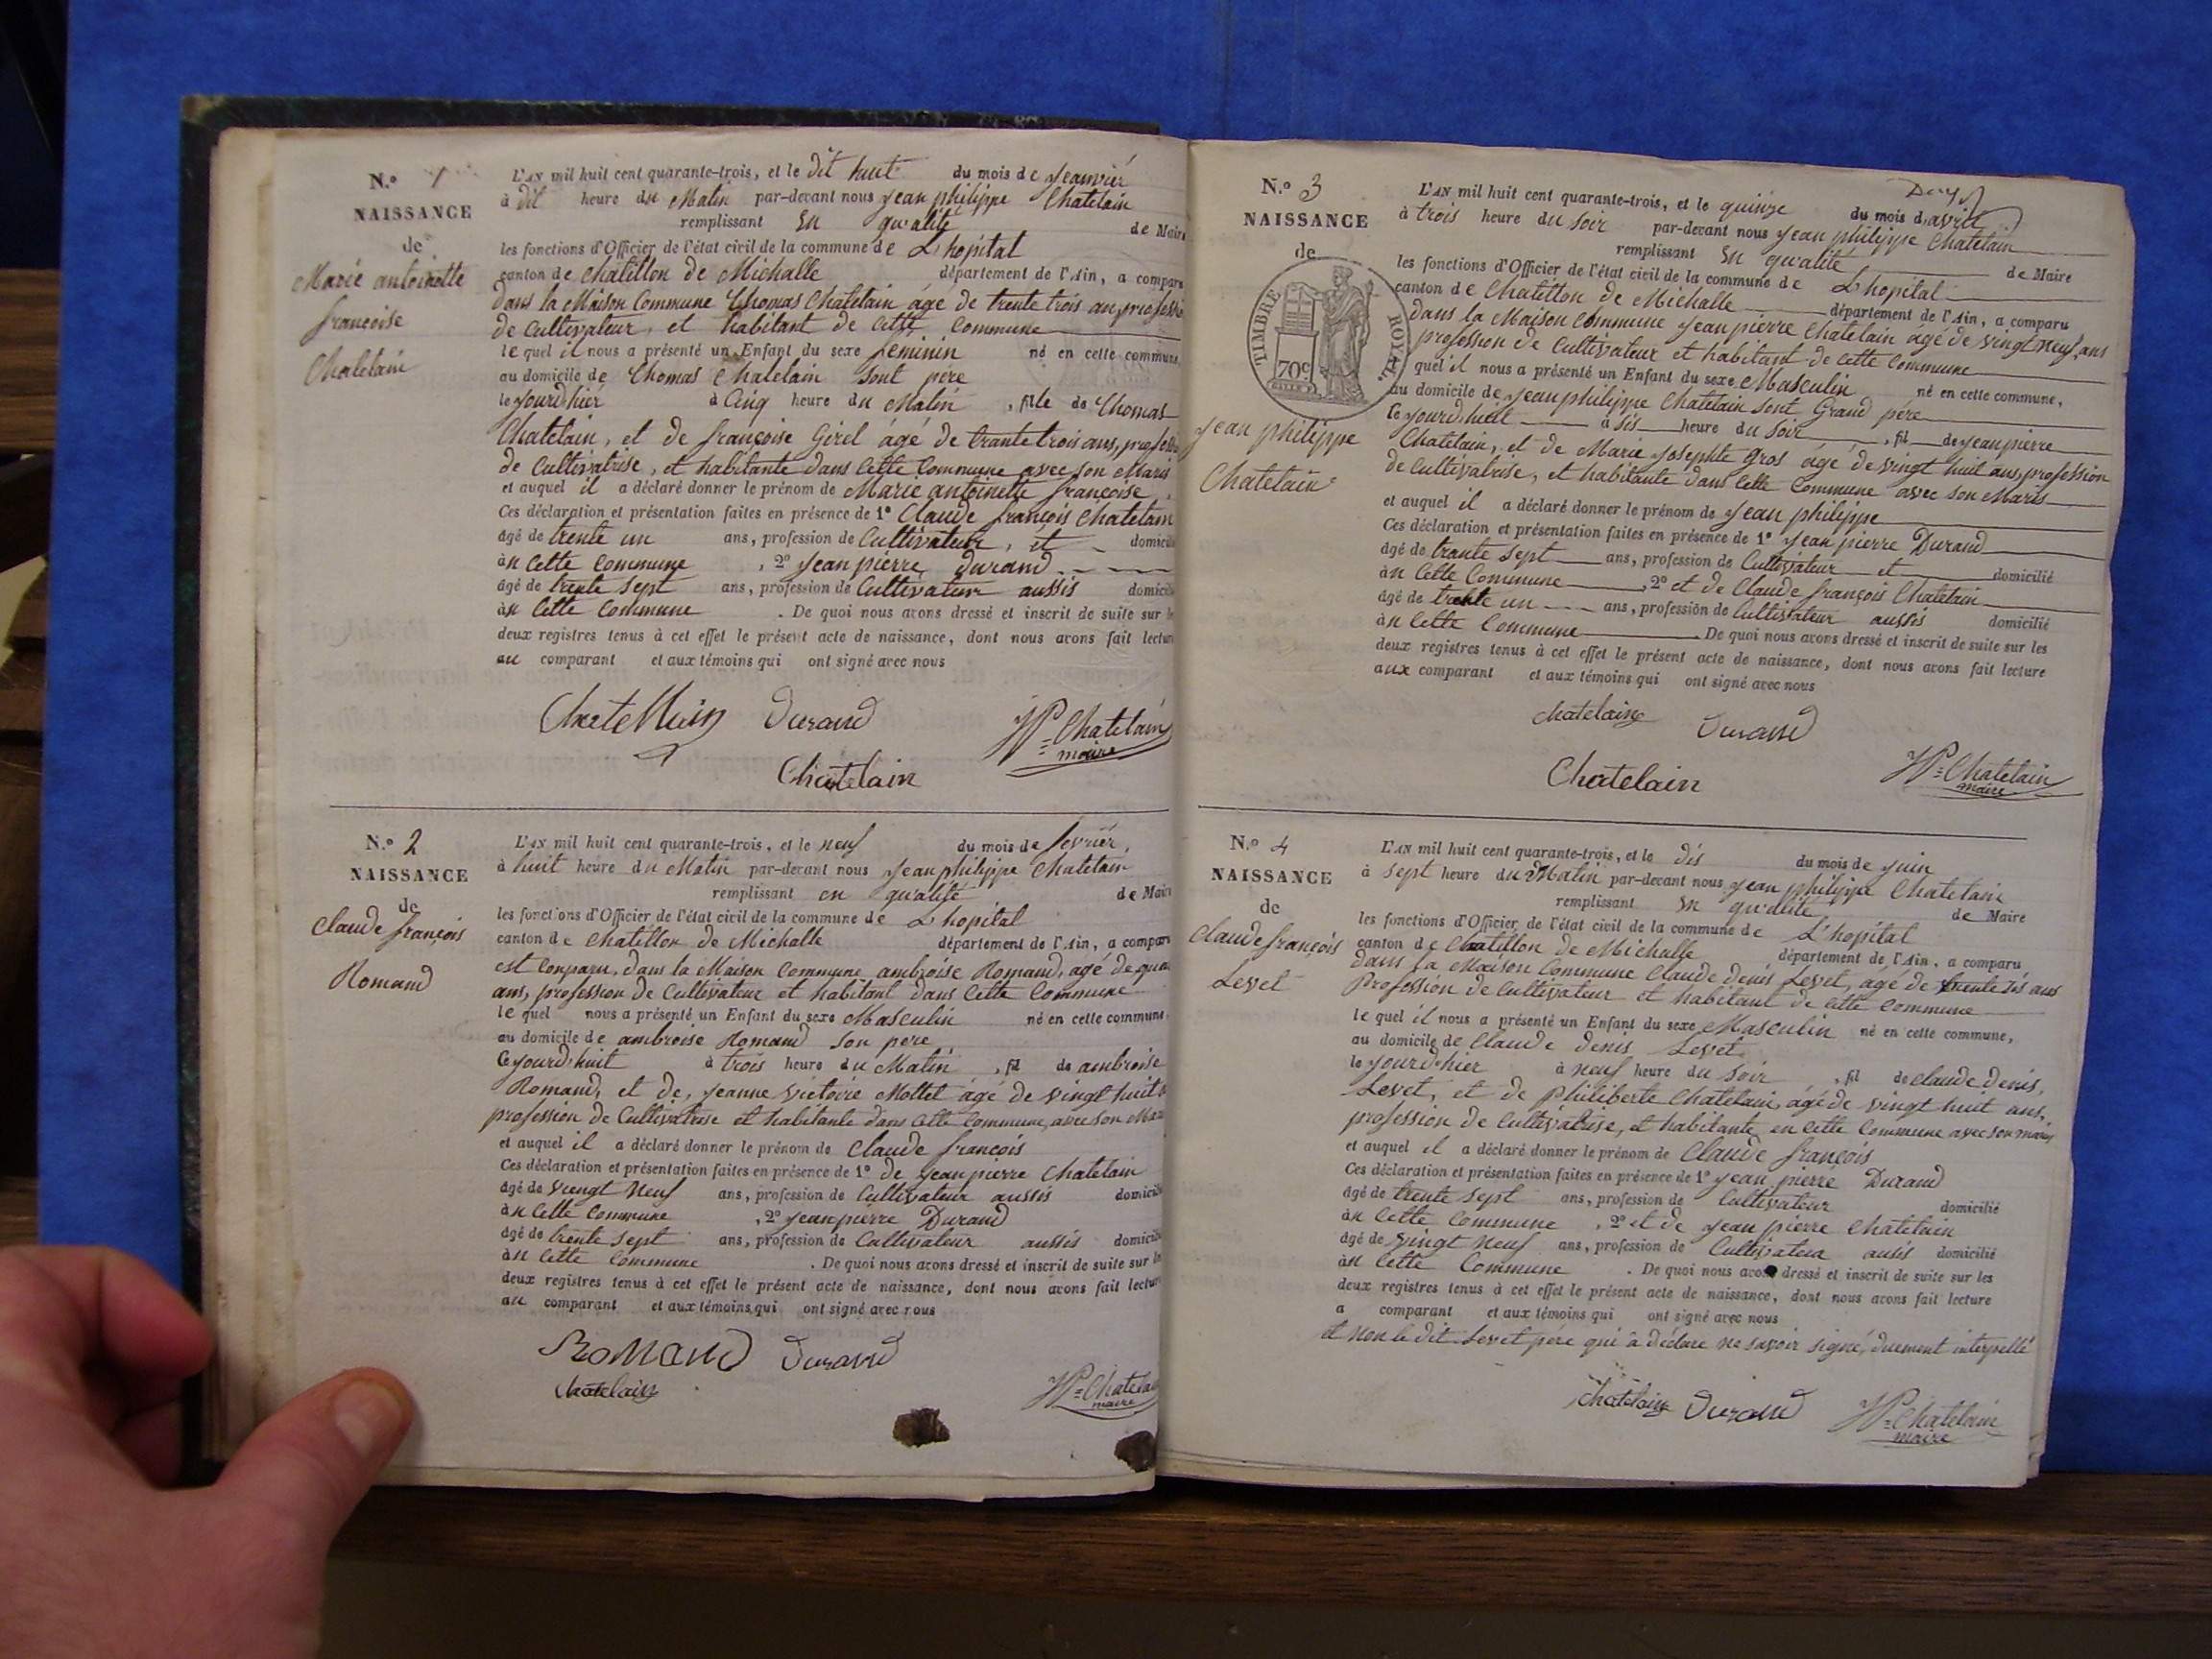 N.º 1
NAISSANCE
de
Marie antoinette
francoise
Chatelain
L'AN mil huit cent quarante-trois, et le dit huit du mois de Jeanvier
à dit heure du Matin par-devant nous Jean philippe Chatelain
remplissant En qu'alité de Maire
les fonctions d'Officier de l'état civil de la commune de L'hopital
canton de Chatillon de Michalle département de l'Ain, a comparu
dans la Maison Commune Thomas Chatelain âgé de trente trois an, professi
de Cultivateur, et habitant de cette Commune
le quel il nous a présenté un Enfant du sexe feminin né en cette commune,
au domicile de Thomas Chatelain sont père
le Jourd'hier à Cinq heure du Matin , fille de Thomas
Chatelain, et de françoise Girel âgé de trante trois ans, profession
de Cultivatrise, et habitante dans Cette Commune avec son Maris
et auquel il a déclaré donner le prénom de Marie antoinette françoise
Ces déclaration et présentation faites en présence de 1º Claude françois Chatelain
âgé de trente un ans, profession de Cultivateur, et domicilié
à n Cette Commune , 2º Jean pierre durand
âgé de trente sept ans, profession de Cultivateur aussis domicilié
à n Cette Commune . De quoi nous avons dressé et inscrit de suite sur les
deux registres tenus à cet effet le présent acte de naissance, dont nous avons fait lecture
au comparant et aux témoins qui ont signé avec nous
Chatellain Durand JP=Chatelain
maire
Chatelain
N.º 2
NAISSANCE
de
Claude françois
Romand
L'AN mil huit cent quarante-trois, et le neuf du mois de fevrier,
à huit heure du Matin par-devant nous Jean philippe Chatelain
remplissant en qu'alité de Maire
les fonctions d'Officier de l'état civil de la commune de L'hopital
canton de Chatillon de Michalle département de l'Ain, a comparu
est Conparu, dans la Maison Commune ambroise Romand, agé de qua
ans, profession de Cultivateur et habitant dans Cette Commune
le quel nous a présenté un Enfant du sexe Masculin né en cette commune
au domicile de ambroise Romand son pere
Ce jourd'huit à trois heure du Matin , fil de ambroise
Romand, et de, Jeanne Victoire Mottet âgé de vingt huit
profession de Cultivatrise et habitante dans Cette Commune, avec son Mari
et auquel il a déclaré donner le prénom de Claude francois
Ces déclaration et présentation faites en présence de 1º de Jean pierre Chatelain
âgé de viengt Neuf ans, profession de Cultivateur aussis domicilié
à n Cette Commune , 2º Jean pierre Durand
âgé de trente sept ans, profession de Cultivateur aussis domicilié
à n Cette Commune . De quoi nous avons dressé et inscrit de suite sur les
deux registres tenus à cet effet le présent acte de naissance, dont nous avons fait lecture
au comparant et aux témoins qui ont signé avec nous
Romand Durand
Chatelain JP=Chatelain
maire
N.º 3
NAISSANCE
de
TIMBRE ROYAL
70c
Jean philippe
Chatelain
L'AN mil huit cent quarante-trois, et le quinze du mois d'avril
à trois heure du soir par-devant nous Jean philippe Chatelain
remplissant En qu'alité de Maire
les fonctions d'Officier de l'état civil de la commune de L'hopital
canton de Chatillon de Michalle département de l'Ain, a comparu
dans la Maison Commune Jean pierre Chatelain âgé de vingt neuf ans
profession de Cultivateur et habitant de cette Commune
quel il nous a présenté un Enfant du sexe Masculin né en cette commune,
au domicile de Jean philippe Chatelain sont Grand père
Ce jourd'huit à sis heure du Soir , fil de Jean pierre
Chatelain, et de Marie Josephte Gros âgé de vingt huit ans, profession
de Cultivatrise, et habitante dans Cette Commune avec son Maris
et auquel il a déclaré donner le prénom de Jean philippe
Ces déclaration et présentation faites en présence de 1º Jean pierre Durand
âgé de trante sept ans, profession de Cultivateur et domicilié
à n Cette Commune , 2º et de Claude françois Chatelain
âgé de trente un ans, profession de Cultivateur aussis domicilié
à n Cette Commune . De quoi nous avons dressé et inscrit de suite sur les
deux registres tenus à cet effet le présent acte de naissance, dont nous avons fait lecture
aux comparant et aux témoins qui ont signé avec nous
Chatelain Durand
Chatelain JP=Chatelain
maire
N.º 4
NAISSANCE
de
Claude françois
Levet
L'AN mil huit cent quarante-trois, et le dis du mois de Juin
à sept heure du Matin par-devant nous Jean philippe Chatelain
remplissant En qu'alité de Maire
les fonctions d'Officier de l'état civil de la commune de L'hopital
canton de Chatillon de Michalle département de l'Ain, a comparu
dans la Maison Commune Claude denis Levet, âgé de trente sis ans
Profession de Cultivateur et habitant de cette Commune
le quel il nous a présenté un Enfant du sexe Masculin né en cette commune,
au domicile de Claude denis Levet
le jourd'hier à neuf heure du Soir , fil de claude denis,
Levet, et de Philiberte Chatelain, âgé de vingt huit ans,
profession de Cultivatrise, et habitante en cette Commune avec son maris
et auquel il a déclaré donner le prénom de Claude françois
Ces déclaration et présentation faites en présence de 1º Jean pierre Durand
âgé de trente sept ans, profession de Cultivateur domicilié
à n Cette Commune , 2º et de Jean pierre Chatelain
âgé de vingt neuf ans, profession de Cultivateur ausis domicilié
à n Cette Commune . De quoi nous avons dressé et inscrit de suite sur les
deux registres tenus à cet effet le présent acte de naissance, dont nous avons fait lecture
a comparant et aux témoins qui ont signé avec nous
et non le dit Levet père qui à déclare ne savoir signé, duement interpellé
Chatelain Durand JP=Chatelain
maire